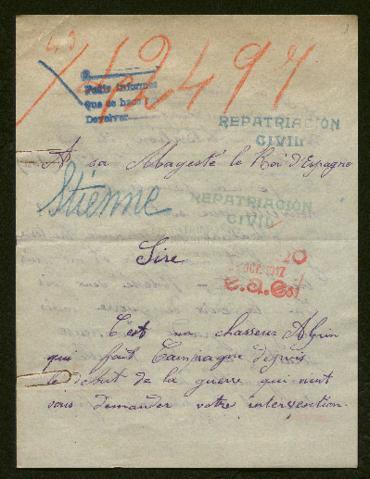 142497
Pedir informes
que se hace
Devolver
REPATRIACIÓN
CIVIL
A sa Magesté le Roi d'Espagne
Etienne
REPATRIACIÓN
CIVIL
Sire
20
OCT. 1917
C'est un chasseur Alpin
qui fait Campagne depuis
le début de la guerre qui vient
vous demander votre intervention.